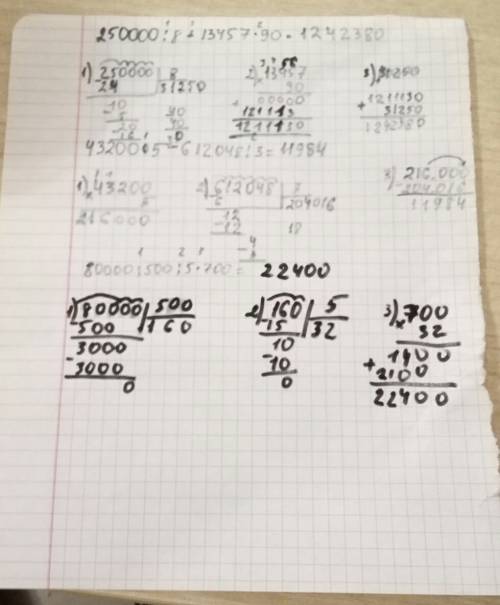 250000:8+13457·90=1242380
1) 250000 | 8
24 31250
10
8
20
16
40
40
0
2) 13457
90
00000
+ 121113
1211130
3) 31250
1211130
+ 31250
1242380
43200·5-612048:3=11984
1) 43200
216000
2) 612048
6 204016
12
-12 18
3) 216.000
-204016
11984
80000:500:5·700=22400
1) 80000 | 500
-500 160
3000
-3000
0
2) 160 | 5
-15 32
10
-10
0
3) 700
× 32
1400
+ 2100
22400